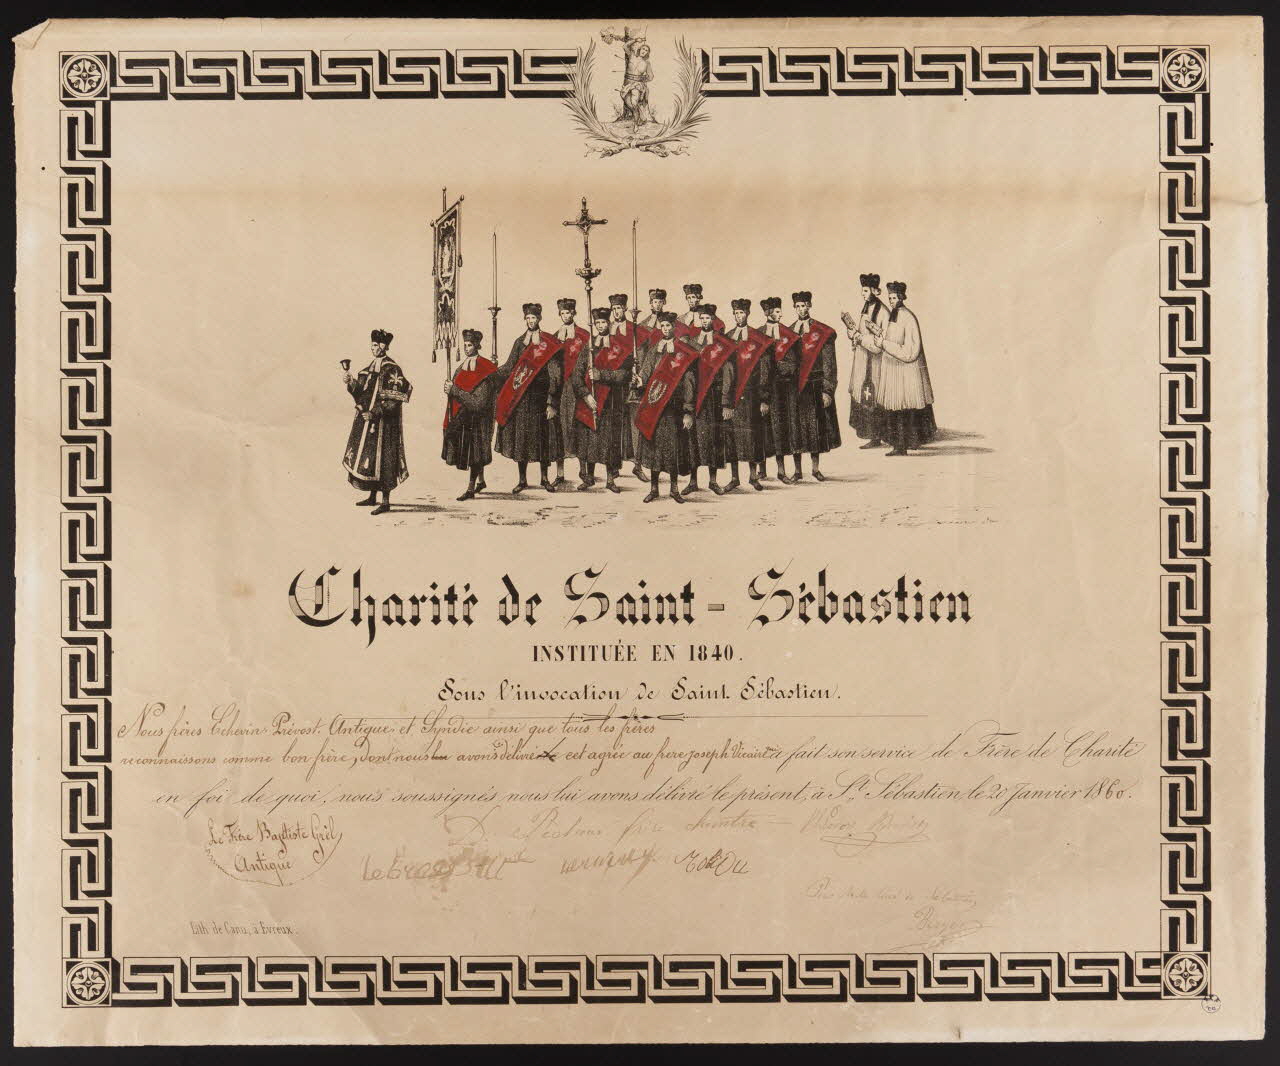 Charité de Saint-Sébastien
INSTITUÉE EN 1840.
Sous l'invocation de Saint Sébastien.
Nous frères Echevin Prévost Antique et Syndic ainsi que tous les frères
reconnaissons comme bon frère, dont nous avons délivré cet agréé au frere joseph Vicaire a fait son service de Frère de Charité
en foi de quoi, nous soussignés nous lui avons délivré le présent, à St. Sébastien le 20 Janvier 1860.
Le Frère Baptiste Grêl
Antique
frère
Lith. de Canu, à Evreux.